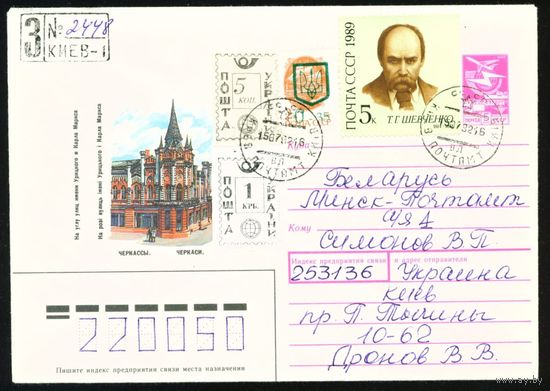 З №2448
КИЕВ-1
5 КОП
ПОШТА
УКР
ПОЧТА СССР 1989
5к
Т.Г. ШЕВЧЕНКО
ПОЧТАМТ
1 КРБ.
ПОШТА
На углу улиц имени Урицкого и Карла Маркса
На розі вулиць імені Урицького і Карла Маркса
ЧЕРКАССЫ. ЧЕРКАСИ.
Беларусь
Минск-Почтамт
Кому
Симонов В.П.
Индекс предприятия связи и адрес отправителя
253136
Украина
Киев
пр. П. Тычины
10-62
Дронов В.В.
220050
Пишите индекс предприятия связи места назначения
www.ay.by